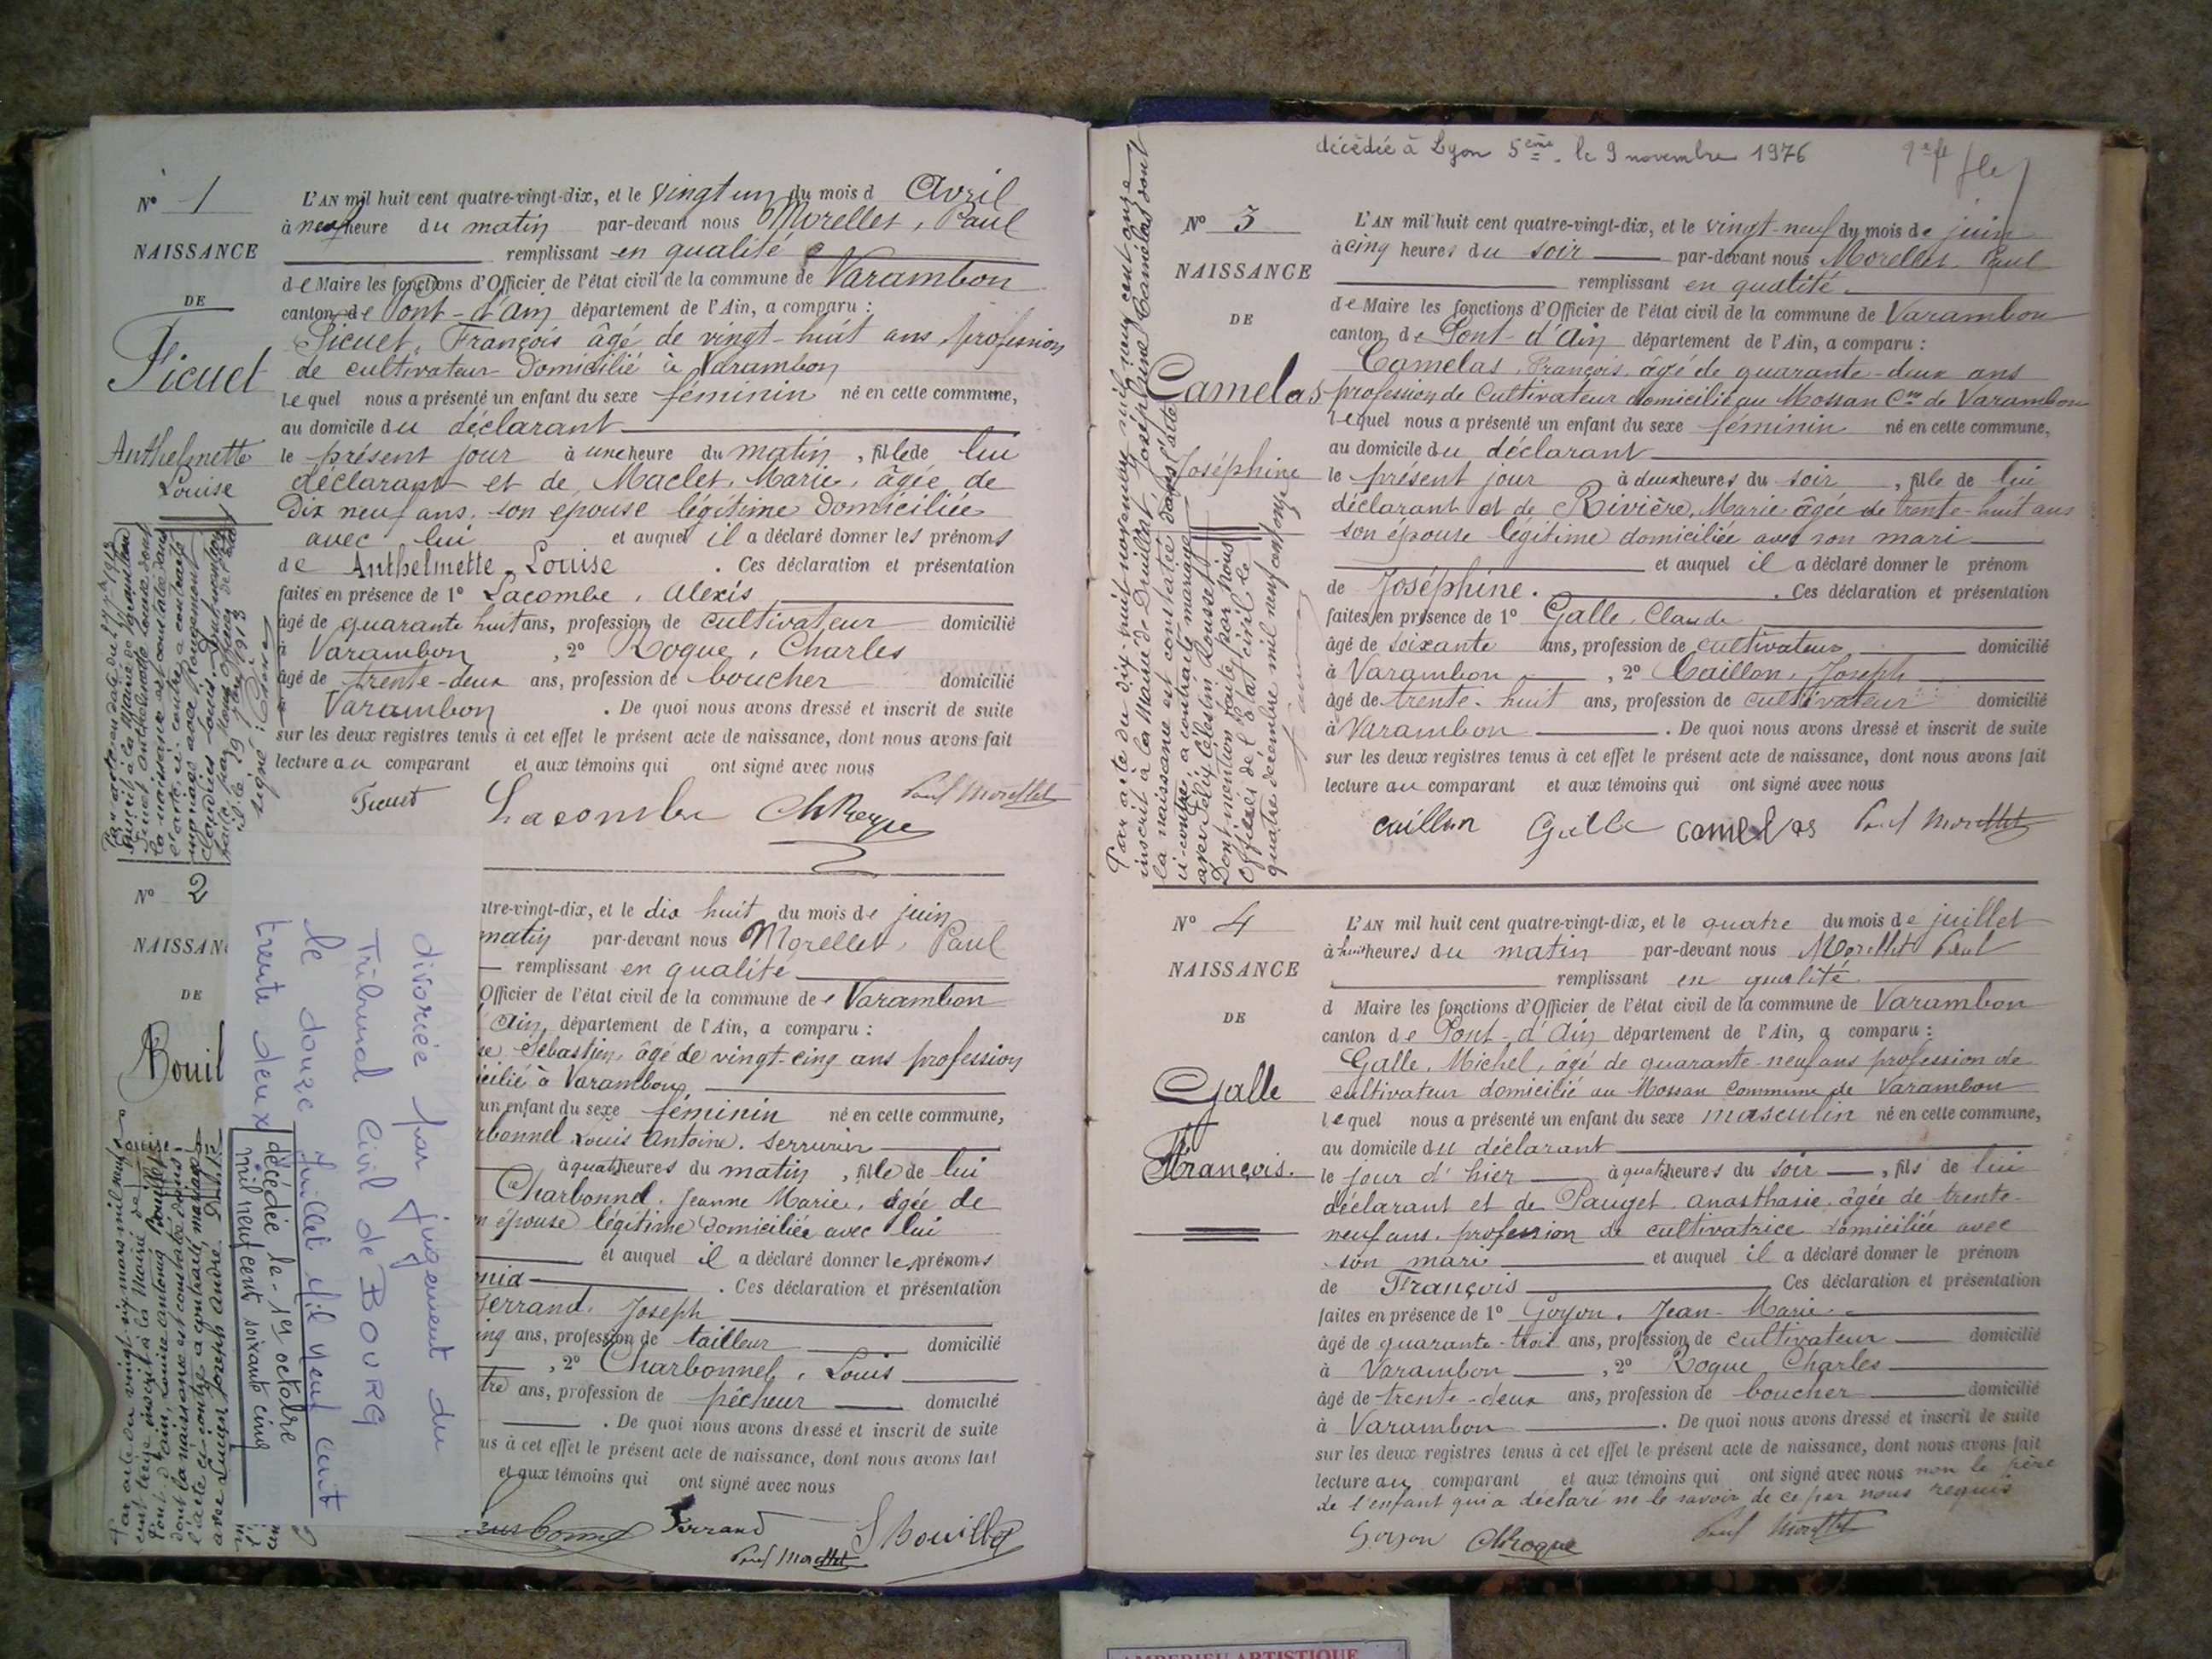 N° 1
NAISSANCE
DE
Ficuet
Anthelmette
Louise
L'AN mil huit cent quatre-vingt-dix, et le vingt un du mois d Avril
à neuf heure du matin par-devant nous Morellet, Paul
remplissant en qualité
de Maire les fonctions d'Officier de l'état civil de la commune de Varambon
canton de Pont-d'Ain département de l'Ain, a comparu :
Ficuet, François âgé de vingt-huit ans, profession
de cultivateur domicilié à Varambon
lequel nous a présenté un enfant du sexe féminin né en cette commune,
au domicile du déclarant
le présent jour à une heure du matin, fille de lui
déclarant et de Maclet, Marie, âgée de
dix neuf ans, son épouse légitime domiciliée
avec lui et auquel il a déclaré donner les prénoms
de Anthelmette Louise. Ces déclaration et présentation
faites en présence de 1° Lacombe, Alexis
âgé de quarante huit ans, profession de cultivateur domicilié
à Varambon, 2° Roque, Charles
âgé de trente-deux ans, profession de boucher domicilié
Varambon. De quoi nous avons dressé et inscrit de suite
sur les deux registres tenus à cet effet le présent acte de naissance, dont nous avons fait
lecture au comparant et aux témoins qui ont signé avec nous
Ficuet Lacombe Ch Roque Paul Morellet
N° 2
NAISSAN
DE
Bouil
divorcée par jugement du
Tribunal Civil de BOURG
le douze Juillet Mil neuf cent
trente deux
décédée le 19 octobre
mil neuf cent soixante cinq
atre-vingt-dix, et le dix huit du mois de juin
matin par-devant nous Morellet, Paul
remplissant en qualité
Officier de l'état civil de la commune de Varambon
Ain, département de l'Ain, a comparu :
Sébastien, âgé de vingt-cinq ans profession
icilié à Varambon
un enfant du sexe féminin né en cette commune,
rbonnel Louis Antoine, serrurier
à quatre heures du matin, fille de lui
Charbonnel, Jeanne Marie, âgée de
n épouse légitime domiciliée avec lui
et auquel il a déclaré donner le prénoms
nia. Ces déclaration et présentation
Ferrand, Joseph
inq ans, profession de tailleur domicilié
, 2° Charbonnel, Louis
tre ans, profession de pêcheur domicilié
. De quoi nous avons dressé et inscrit de suite
us à cet effet le présent acte de naissance, dont nous avons fait
et aux témoins qui ont signé avec nous
Ferrand S Bouillet
Paul Morellet
décédée à Lyon 5ème le 9 novembre 1976
N° 3
NAISSANCE
DE
Camelas
Joséphine
Par acte du dix-huit novembre mil neuf cent onze
inscrit à la Mairie de Druillat, Joséphine Camelas dont
la naissance est constatée dans l'acte
ci-contre, a contracté mariage
avec Félix Célestin Rousset
Dont mention faite par Nous
Officier de l'état civil le
quatre décembre mil neuf cent onze
L'AN mil huit cent quatre-vingt-dix, et le vingt-neuf du mois de juin
à cinq heures du soir par-devant nous Morellet Paul
remplissant en qualité
de Maire les fonctions d'Officier de l'état civil de la commune de Varambon
canton de Pont-d'Ain département de l'Ain, a comparu :
Camelas, François, âgé de quarante-deux ans
profession de Cultivateur domicilié au Mossan Cne de Varambon
lequel nous a présenté un enfant du sexe féminin né en cette commune,
au domicile du déclarant
le présent jour à deux heures du soir, fille de lui
déclarant et de Rivière, Marie âgée de trente-huit ans
son épouse légitime domiciliée avec son mari
et auquel il a déclaré donner le prénom
de Joséphine. Ces déclaration et présentation
faites en présence de 1° Galle, Claude
âgé de soixante ans, profession de cultivateur domicilié
à Varambon, 2° Caillon, Joseph
âgé de trente-huit ans, profession de cultivateur domicilié
à Varambon. De quoi nous avons dressé et inscrit de suite
sur les deux registres tenus à cet effet le présent acte de naissance, dont nous avons fait
lecture au comparant et aux témoins qui ont signé avec nous
caillon Galle camelas Paul Morellet
N° 4
NAISSANCE
DE
Galle
François.
L'AN mil huit cent quatre-vingt-dix, et le quatre du mois de juillet
à huit heures du matin par-devant nous Morellet Paul
remplissant en qualité
d Maire les fonctions d'Officier de l'état civil de la commune de Varambon
canton de Pont-d'Ain département de l'Ain, a comparu :
Galle, Michel, âgé de quarante-neuf ans profession de
cultivateur domicilié au Mossan commune de Varambon
lequel nous a présenté un enfant du sexe masculin né en cette commune,
au domicile du déclarant
le jour d'hier à quatre heures du soir, fils de lui
déclarant et de Pauget anasthasie, âgée de trente-
neuf ans, profession de cultivatrice domiciliée avec
son mari et auquel il a déclaré donner le prénom
de François Ces déclaration et présentation
faites en présence de 1° Goyon, Jean-Marie
âgé de quarante-trois ans, profession de cultivateur domicilié
à Varambon, 2° Roque Charles
âgé de trente-deux ans, profession de boucher domicilié
à Varambon. De quoi nous avons dressé et inscrit de suite
sur les deux registres tenus à cet effet le présent acte de naissance, dont nous avons fait
lecture au comparant et aux témoins qui ont signé avec nous non le père
de l'enfant qui a déclaré ne le savoir de ce par nous requis
Goyon Ch Roque Paul Morellet
AMBERIEU ARTISTIQUE